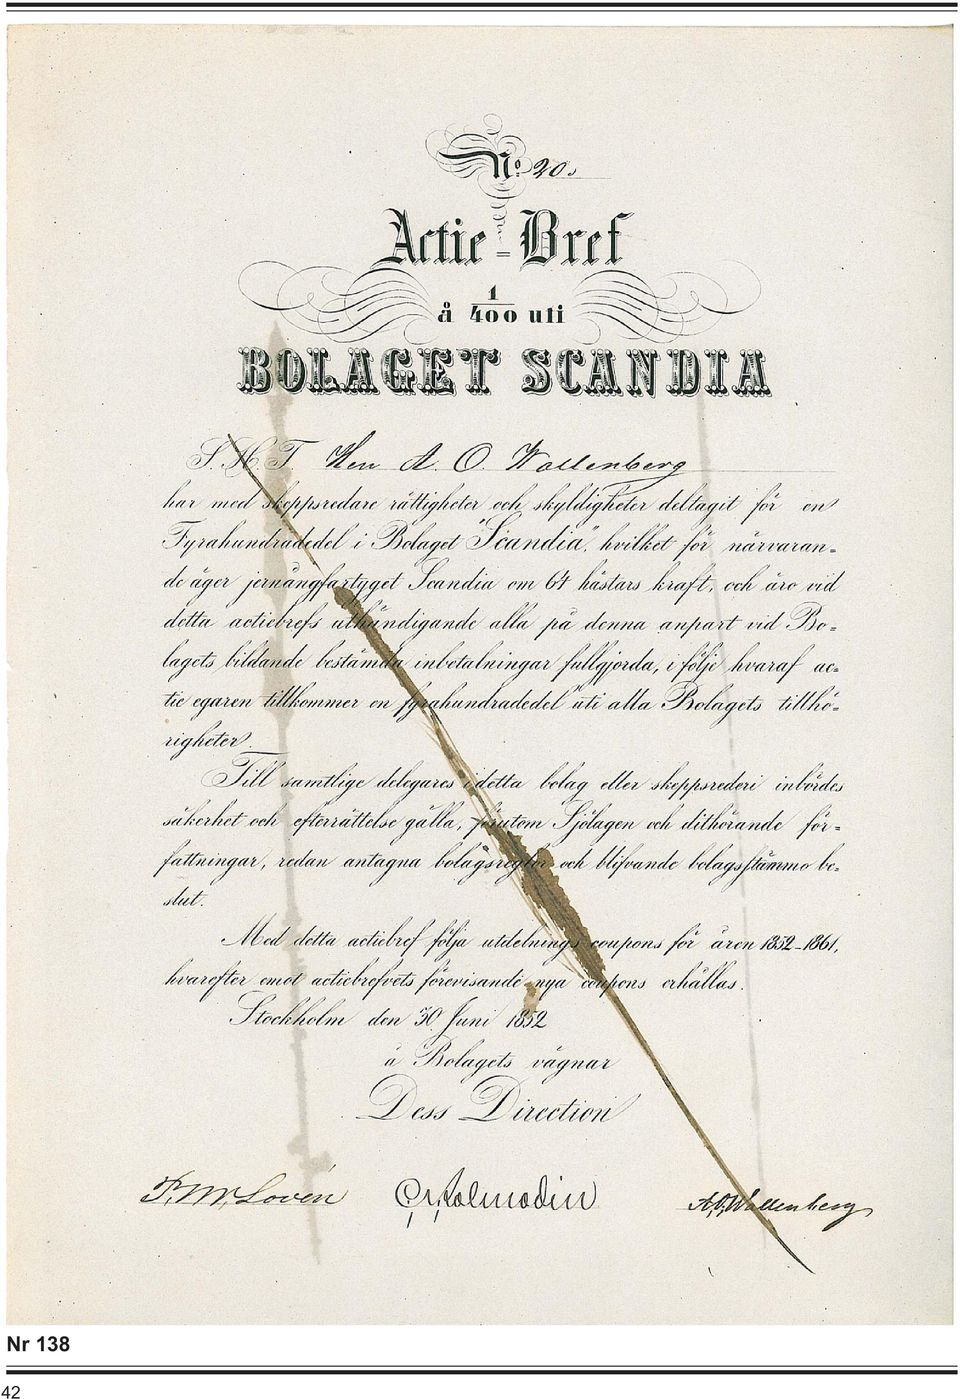 No 20.
Actie-Bref
å 1/400 uti
BOLAGET SCANDIA
S. H. T. Herr A. O. Wallenberg
har med skeppsredare rättigheter och skyldigheter deltagit för en
Fyrahundradedel i Bolaget "Scandia", hvilket för närvaran=
de äger jernångfartyget Scandia om 64 hästars kraft, och äro vid
detta actiebrefs uthändigande alla på denna anpart vid Bo=
lagets bildande bestämda inbetalningar fullgjorda, i följe hvaraf ac=
tie egaren tillkommer en fyrahundradedel uti alla Bolagets tillhö=
righeter.
Till samtlige delegares i detta bolag eller skeppsrederi inbördes
säkerhet och efterrättelse gälla, förutom Sjölagen och dithörande för=
fattningar, redan antagna bolagsregler och blifvande bolagsstämmo be=
slut.
Med detta actiebref följa utdelnings coupons för åren 1852-1861,
hvarefter emot actiebrefvets förevisande nya coupons erhållas.
Stockholm den 30 Juni 1852
å Bolagets vägnar
Dess Direction
Lovén Kolmodin A. O. Wallenberg
Nr 138
42